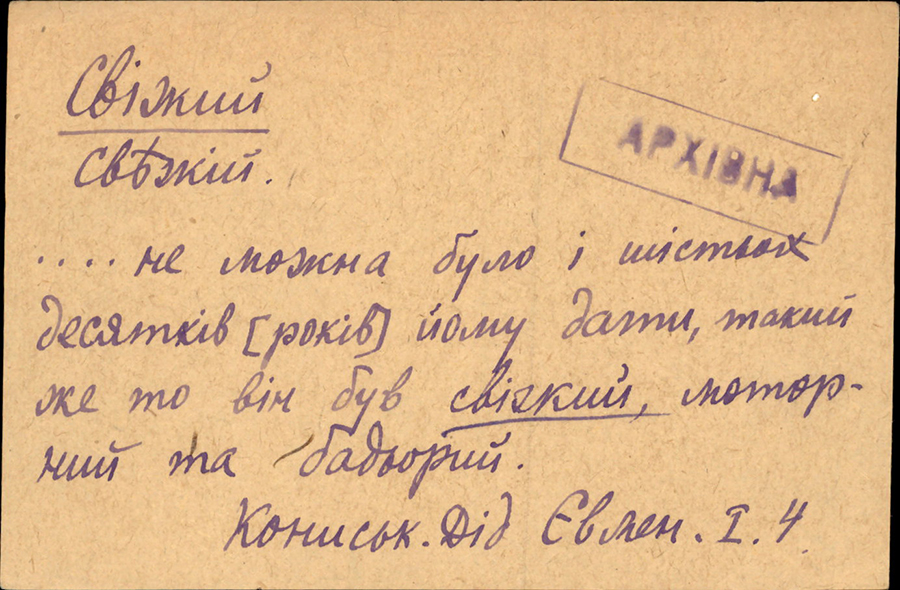 Свіжий
АРХІВНА
свѣжій.
.... не можна було і шістьох
десятків [років] йому дати, такий
же то він був свіжий, мотор-
ний та бадьорий.
Кониськ. Дід Євмен. I. 4